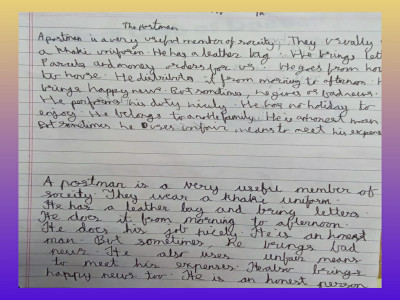 The postman
A postman is a very useful member of society. They usually
a khaki uniform. He has a leather bag. He brings lett
Parcels and money orders for us. He goes from hou
to house. He distributes it from morning to afternoon.
brings happy news. But sometimes, he gives us bad news.
He performs his duty nicely. He has no holiday to
enjoy. He belongs to another family. He is a honest man
But sometimes he uses unfair means to meet his expens
A postman is a very useful member of
society. They wear a khaki uniform.
He has a leather bag and bring letters.
He does it from morning to afternoon.
He does his job nicely. He is an honest
man. But sometimes, he brings bad
news. He also uses unfair means
to meet his expenses. He also brings
happy news too. He is an honest person